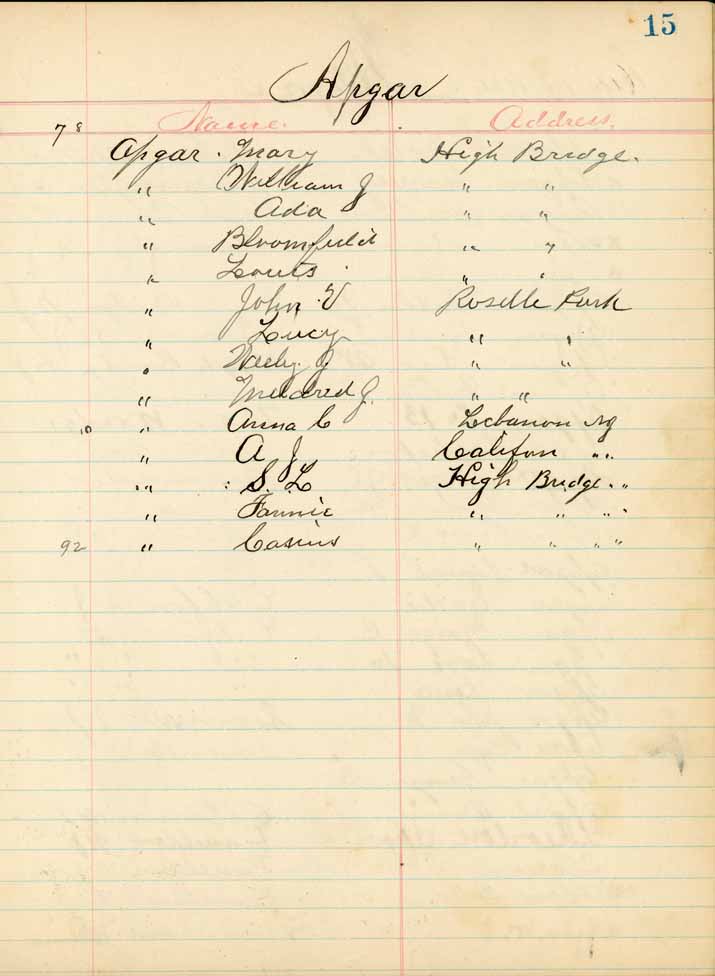 15
Apgar
Name. Address.
78
Apgar. Mary High Bridge.
" William J " "
" Ada " "
" Bloomfield " "
" Louis " "
" John V Roselle Park
" Lucy " "
" J " "
" Mildred J. " "
10 " Anna C Lebanon NJ
" A J Califon "
" S. L High Bridge. "
" Fannie " " "
92 " Casius " " "